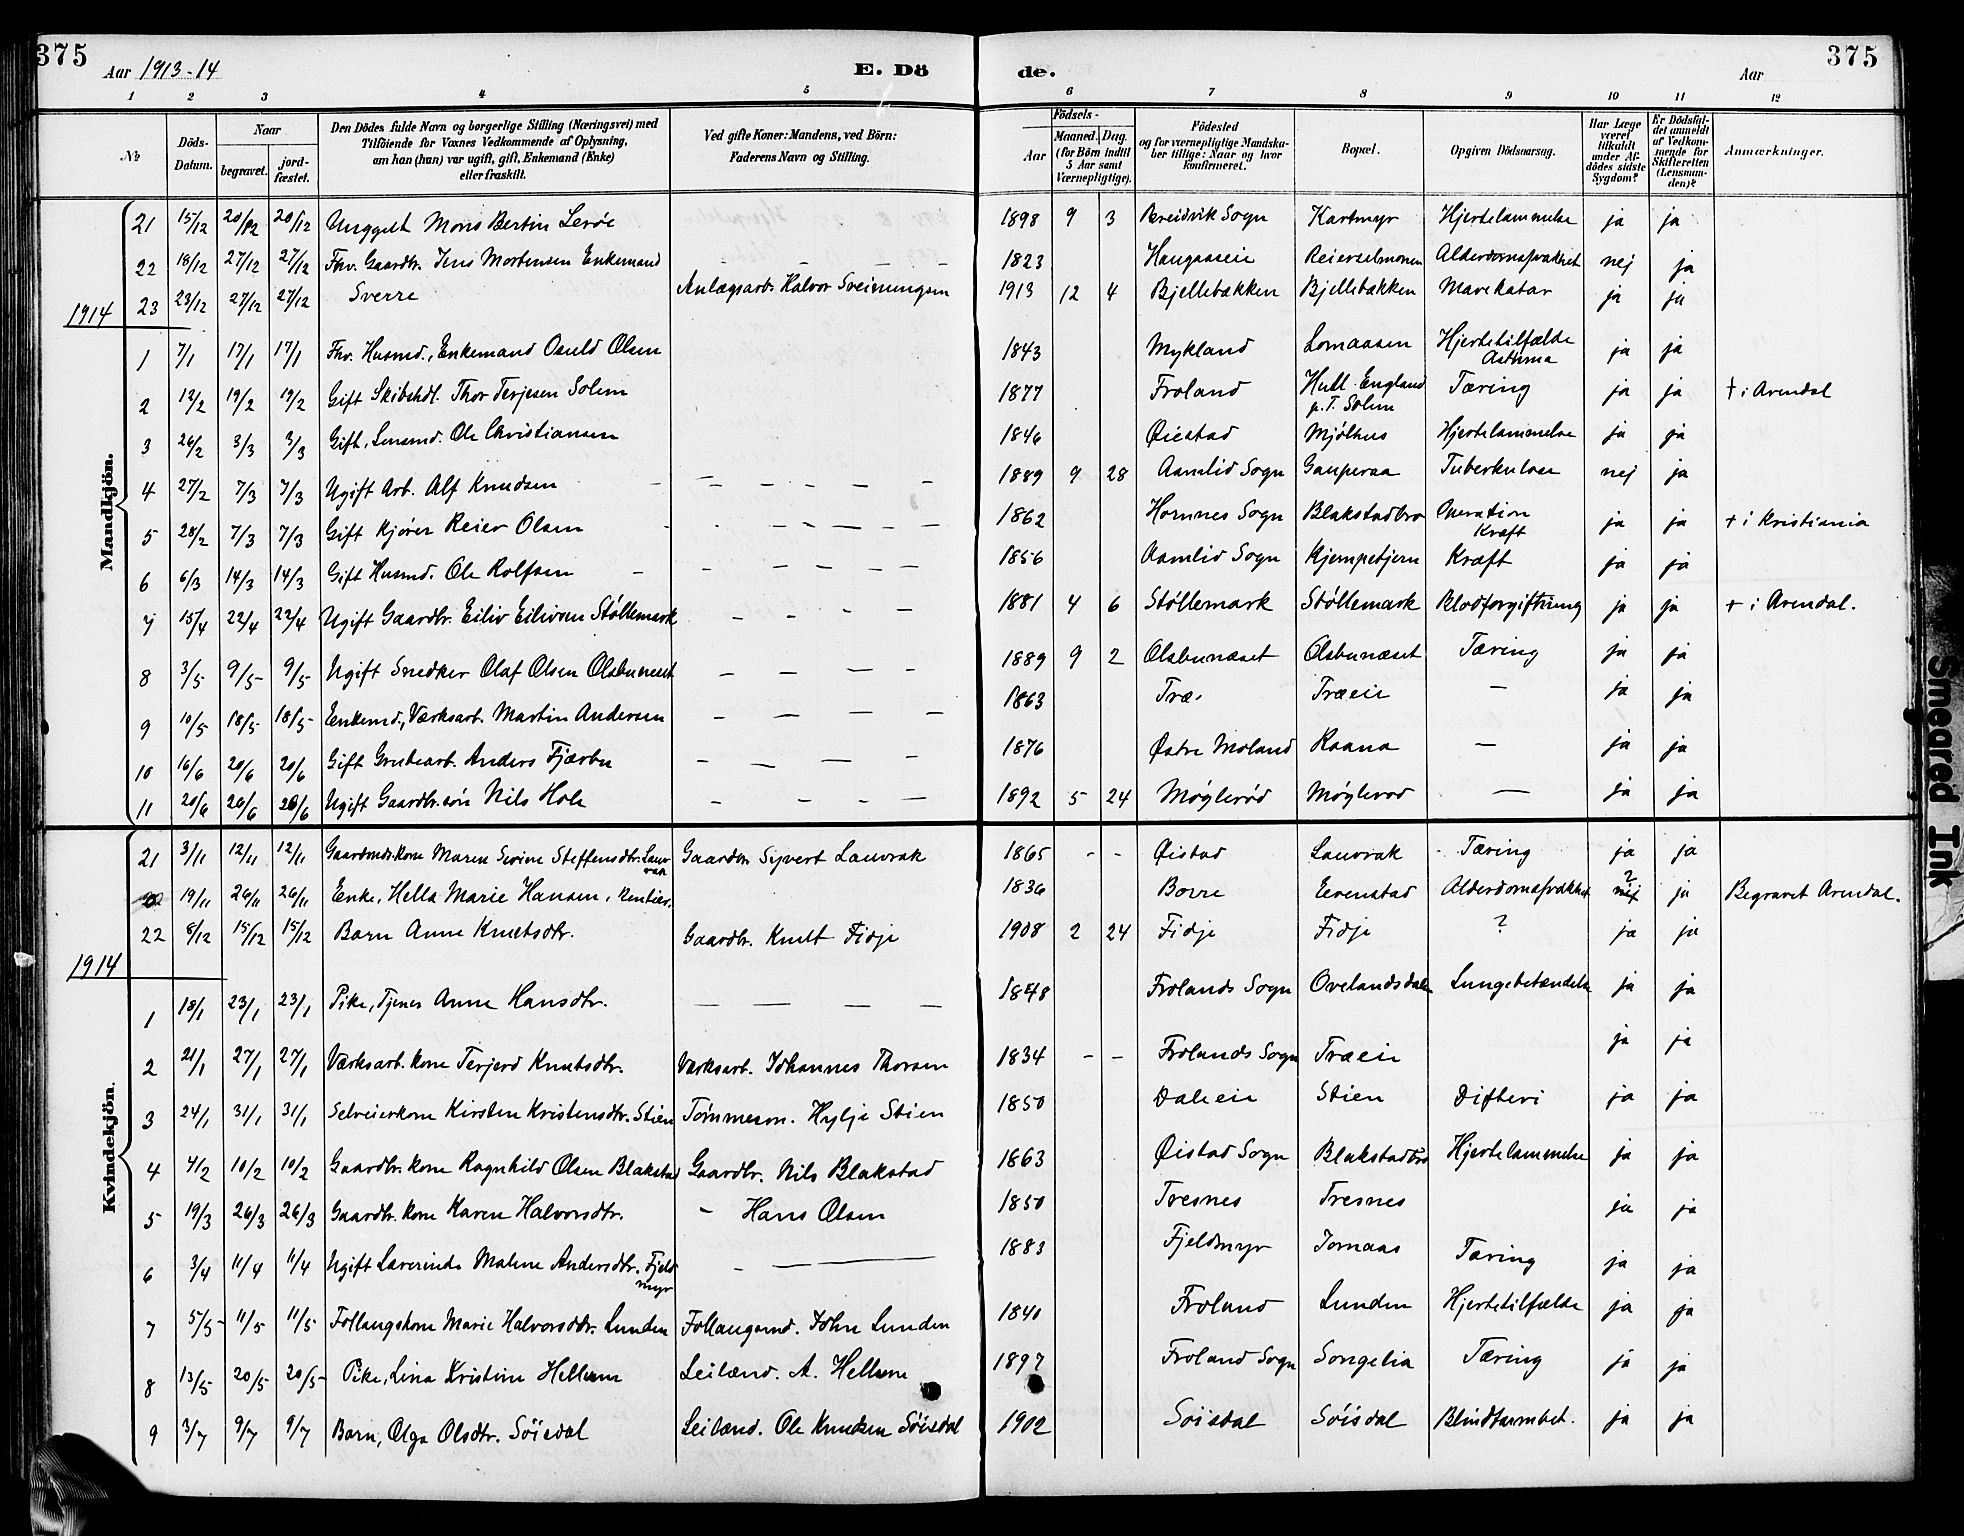 375
375
Aar 1913-14
E. Dö
de.
Aar
1 2 3 4 5 6 7 8 9 10 11 12
No
Döds-Datum.
Naar
begravet.
jord-fæstet.
Den Dödes fulde Navn og borgerlige Stilling (Næringsvei) med Tilföiende for Voxnes Vedkommende af Oplysning, om han (hun) var ugift, gift, Enkemand (Enke) eller fraskilt.
Ved gifte Koner: Mandens, ved Börn: Faderens Navn og Stilling.
Födsels-
Aar
Maaned.
Dag.
(for Börn indtil 5 Aar samt Værnepligtige).
Födested og for værnepligtige Mandskaber tillige: Naar og hvor konfirmeret.
Bopæl.
Opgiven Dödsaarsag.
Har Læge været tilkaldt under Afdödes sidste Sygdom?
Er Dödsfaldet anmeldt af Vedkommende for Skifteretten (Lensmanden)?
Anmærkninger.
Mandkjön.
21 15/12 20/12 20/12 Unggut Mons Bertin Leröe 1898 9 3 Breidvik Sogn Kartmyr Hjertelammelse ja ja
22 18/12 27/12 27/12 Fhv. Gaardbr. Jens Mortensen Enkemand 1823 Haugaaseie Reierselmonen Alderdomssvakhet nej ja
23 23/12 27/12 27/12 Sverre Anlægsarb. Halvor Sveinungsen 1913 12 4 Bjellebækken Bjellebækken Mavekatar ja ja
1914
1 7/1 17/1 17/1 Fhv. Husmd., Enkemand Osuld Olsen 1843 Mykland Lomaasen Hjertetilfælde Asthma ja ja
2 12/2 19/2 19/2 Gift Skibshdl. Thor Terjesen Solem 1877 Froland Hull England p.T. Solem Tæring ja ja + i Arendal
3 26/2 3/3 3/3 Gift, Lensmd. Ole Christiansen 1846 Øiestad Mjölhus Hjertelammelse ja ja
4 27/2 7/3 7/3 Ugift Arb. Alf Knudsen 1889 9 28 Aamlid Sogn Gauperaa Tuberkulose nej ja
5 28/2 7/3 7/3 Gift Kjörer Reier Olsen 1862 Hornnes Sogn Blakstadbro Operation Kræft ja ja + i Kristiania
6 6/3 14/3 14/3 Gift Husmd. Ole Rolfsen 1856 Aamlid Sogn Kjempetjern Kræft ja ja
7 15/4 22/4 22/4 Ugift Gaardbr. Eiliv Eilivsen Støllemark 1881 4 6 Støllemark Støllemark Blodforgiftning ja ja + i Arendal.
8 3/5 9/5 9/5 Ugift Snedker Olaf Olsen Olsbunæset 1889 9 2 Olsbunæset Olsbunæset Tæring ja ja
9 10/5 18/5 18/5 Enkemd., Værksarb. Martin Andersen 1863 Træ. Træeie — ja ja
10 16/6 20/6 20/6 Gift Grubearb. Anders Fjærbu 1876 Østre Moland Raana — ja ja
11 20/6 26/6 26/6 Ugift Gaardbr.sön Nils Hole 1892 5 24 Møglerød Møglerod — ja ja
Kvindekjön.
21 3/11 12/11 12/11 Gaardmds.kone Maren Serine Steffensdtr. Lauvrak Gaardbr. Syvert Lauvrak 1865 - - Øistad Lauvrak Tæring ja ja
19/11 26/11 26/11 Enke, Hella Marie Hansen, Rentier. 1836 Borre Evenstad Alderdomssvakhet ? nej ja Begravet Arendal.
22 8/12 15/12 15/12 Barn Anne Knutsdtr. Gaardbr. Knut Fidje 1908 2 24 Fidje Fidje ? ja ja
1914
1 18/1 23/1 23/1 Pike, Tjenes Anne Hansdtr. 1848 Frolands Sogn Ovelandsdalen Lungebetændelse ja ja
2 21/1 27/1 27/1 Værksarb. kone Terjerd Knutsdtr. Værksarb. Johannes Thorsen 1834 - - Frolands Sogn Træeie ja ja
3 24/1 31/1 31/1 Selveierkone Kirsten Kristensdtr. Stien Tømmerm. Hylje Stien 1850 Daleeie Stien Difteri ja ja
4 4/2 10/2 10/2 Gaardbr. kone Ragnhild Olsen Blakstad Gaardbr. Nils Blakstad 1863 Øistad Sogn Blakstadbro Hjertelammelse ja ja
5 19/3 26/3 26/3 Gaardbr. kone Karen Halvorsdtr. - Hans Olsen 1850 Tresnes Tresnes ja ja
6 3/4 11/4 11/4 Ugift Læverinde Malene Andersdtr. Fjeldmyr 1883 Fjeldmyr Jomaas Tæring ja ja
7 5/5 11/5 11/5 Follaugskone Marie Halvorsdtr. Lunden Follaugsmd. John Lunden 1840 Froland Lunden Hjertetilfælde ja ja
8 13/5 20/5 20/5 Pike, Lina Kristine Hellesen Leilænd. A. Hellesen 1897 Froland Sogn Songelia Tæring ja ja
9 3/7 9/7 9/7 Barn, Olga Olsdtr. Söisdal Leilænd. Ole Knudsen Söisdal 1902 Söisdal Söisdal Blindtarmbet. ja ja
Smeared Ink